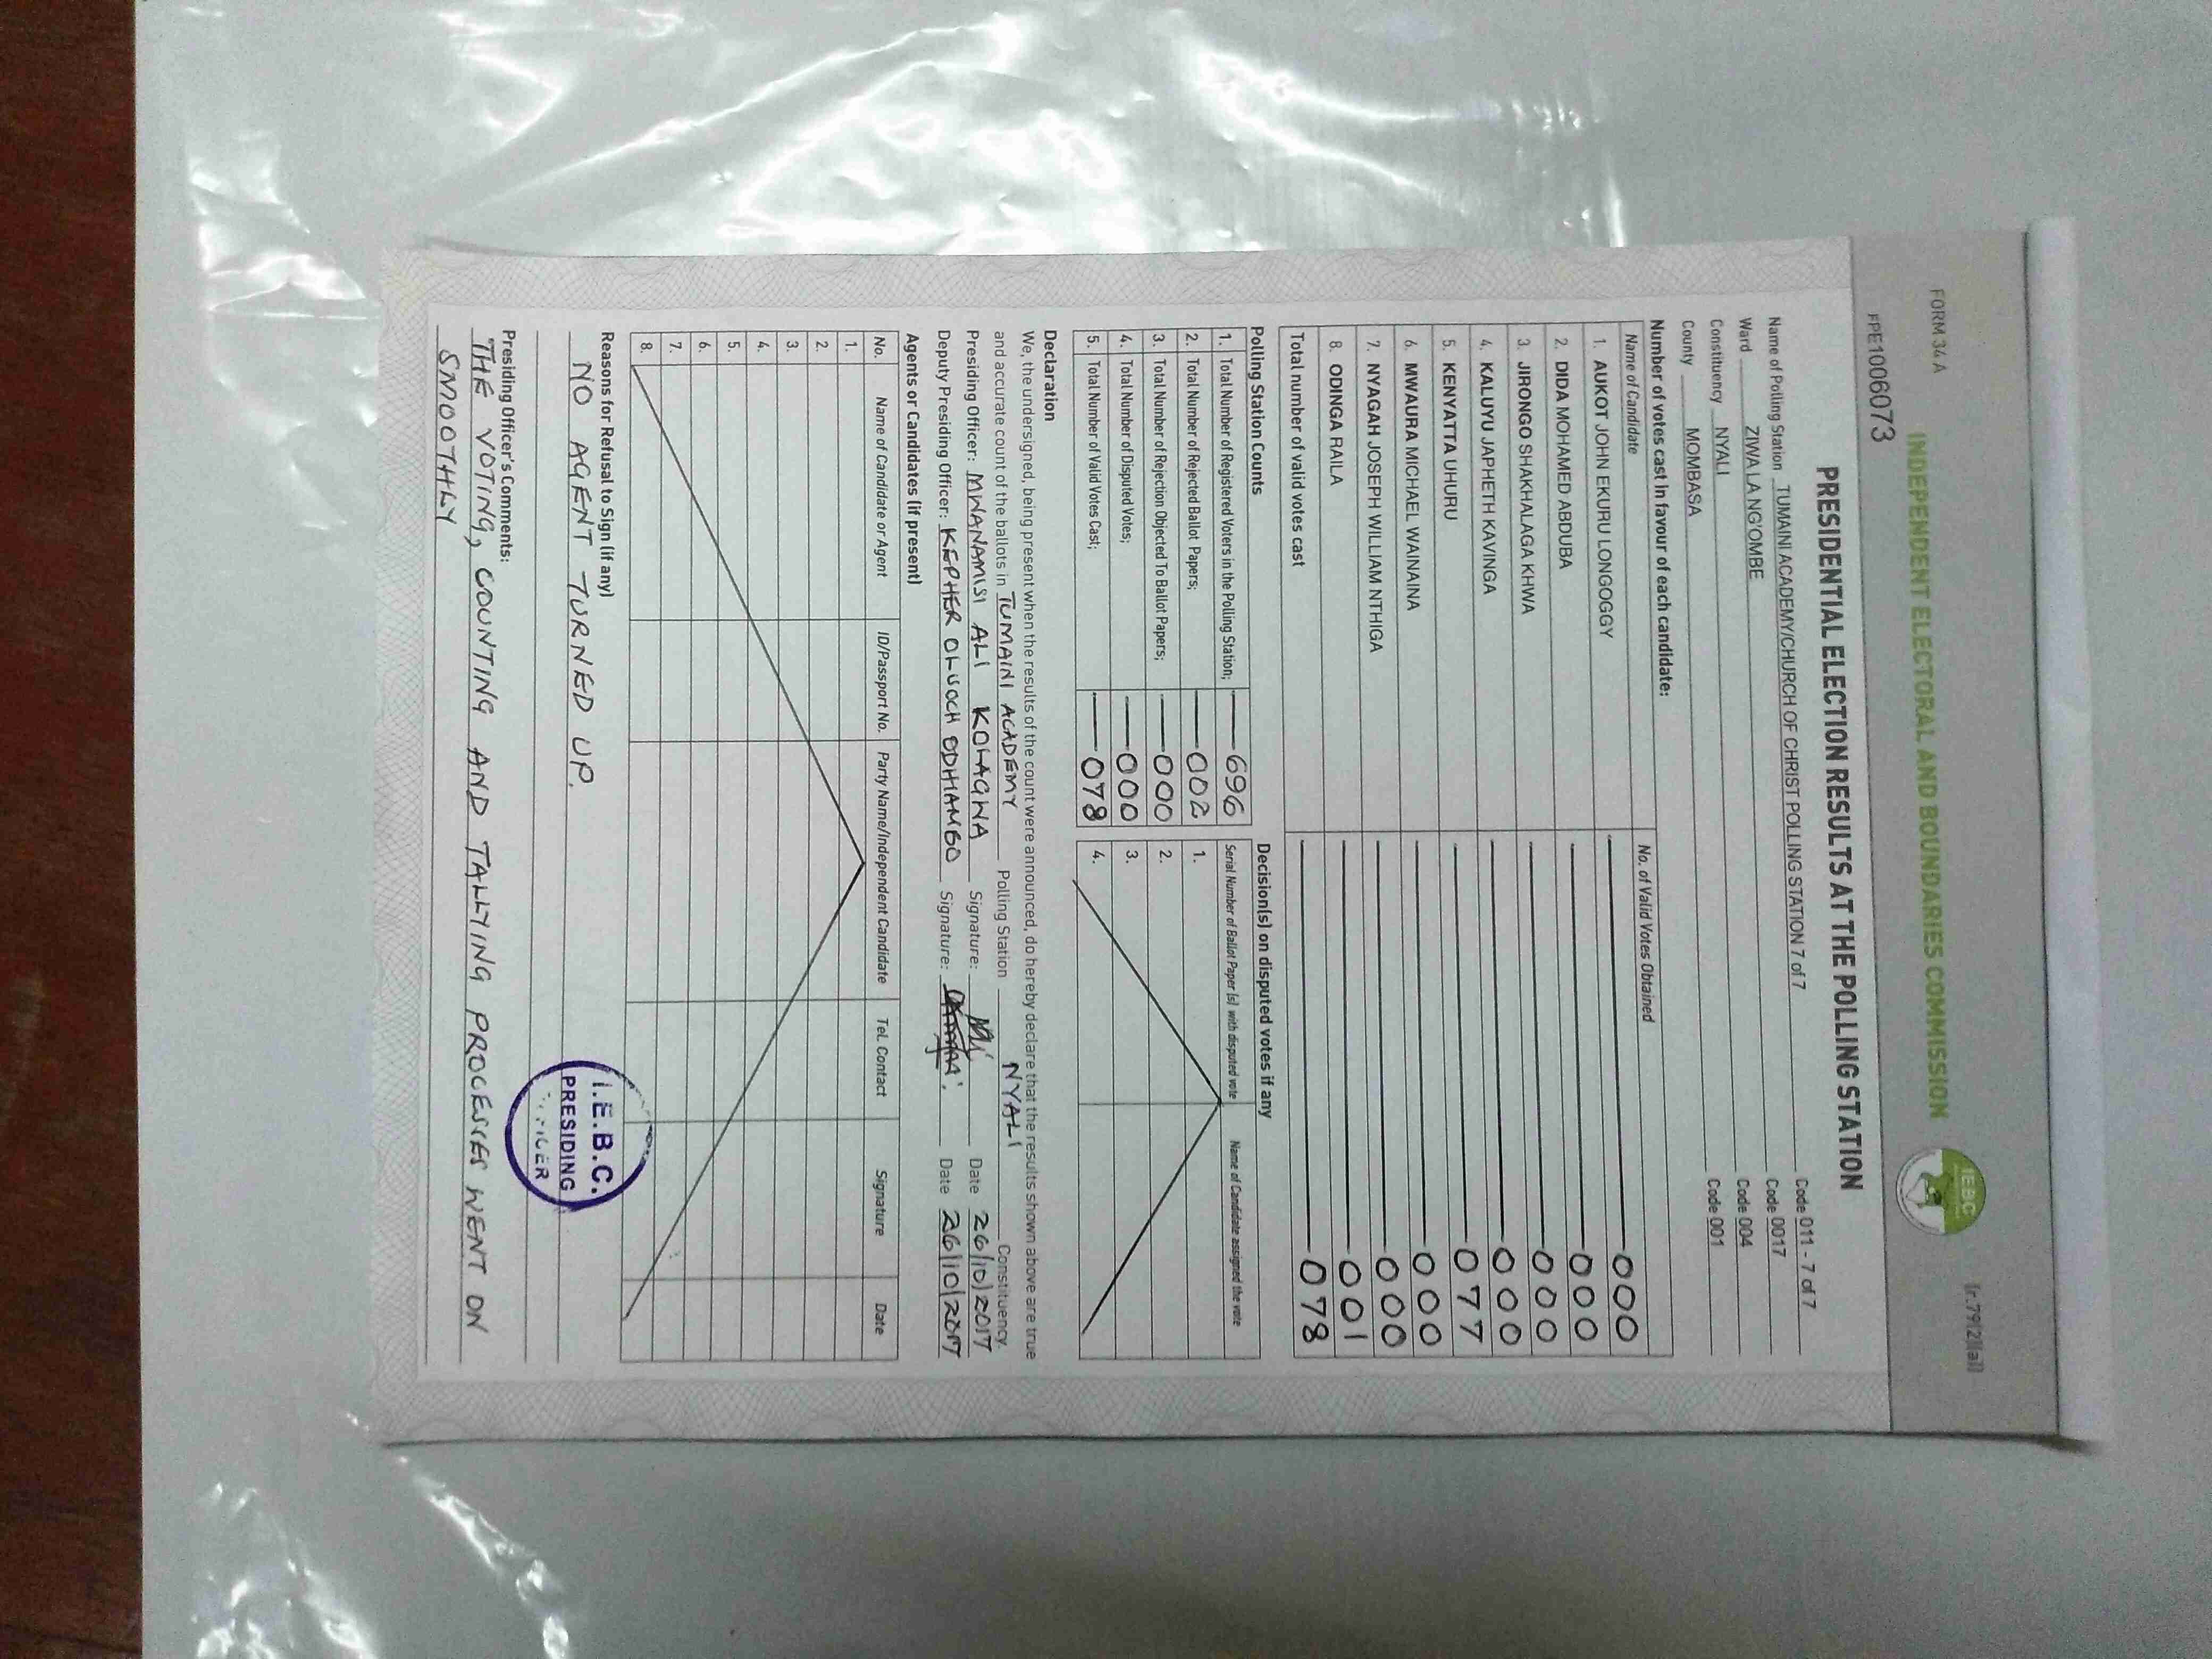 FORM 34 A
INDEPENDENT ELECTORAL AND BOUNDARIES COMMISSION
IEBC
(r.79(2)(a))
FPE1006073
PRESIDENTIAL ELECTION RESULTS AT THE POLLING STATION
Name of Polling Station TUMAINI ACADEMY/CHURCH OF CHRIST POLLING STATION 7 of 7 Code 011 - 7 of 7
Ward ZIWA LA NG'OMBE Code 0017
Constituency NYALI Code 004
County MOMBASA Code 001
Number of votes cast in favour of each candidate:
Name of Candidate No. of Valid Votes Obtained
1. AUKOT JOHN EKURU LONGOGGY 000
2. DIDA MOHAMED ABDUBA 000
3. JIRONGO SHAKHALAGA KHWA 000
4. KALUYU JAPHETH KAVINGA 000
5. KENYATTA UHURU 077
6. MWAURA MICHAEL WAINAINA 000
7. NYAGAH JOSEPH WILLIAM NTHIGA 000
8. ODINGA RAILA 001
Total number of valid votes cast 078
Polling Station Counts
1. Total Number of Registered Voters in the Polling Station; 696
2. Total Number of Rejected Ballot Papers; 002
3. Total Number of Rejection Objected To Ballot Papers; 000
4. Total Number of Disputed Votes; 000
5. Total Number of Valid Votes Cast; 078
Decision(s) on disputed votes if any
Serial Number of Ballot Paper (s) with disputed vote Name of Candidate assigned the vote
1.
2.
3.
4.
Declaration
We, the undersigned, being present when the results of the count were announced, do hereby declare that the results shown above are true
and accurate count of the ballots in TUMAINI ACADEMY Polling Station NYALI Constituency.
Presiding Officer: MWANAMISI ALI KOLAGWA Signature: Date 26/10/2017
Deputy Presiding Officer: KEPHER OLUOCH ODHIAMBO Signature: Date 26/10/2017
Agents or Candidates (if present)
No. Name of Candidate or Agent ID/Passport No. Party Name/Independent Candidate Tel. Contact Signature Date
1.
2.
3.
4.
5.
6.
7.
8.
Reasons for Refusal to Sign (if any)
NO AGENT TURNED UP.
I.E.B.C.
PRESIDING
Presiding Officer's Comments:
THE VOTING, COUNTING AND TALLYING PROCESSES WENT ON
SMOOTHLY